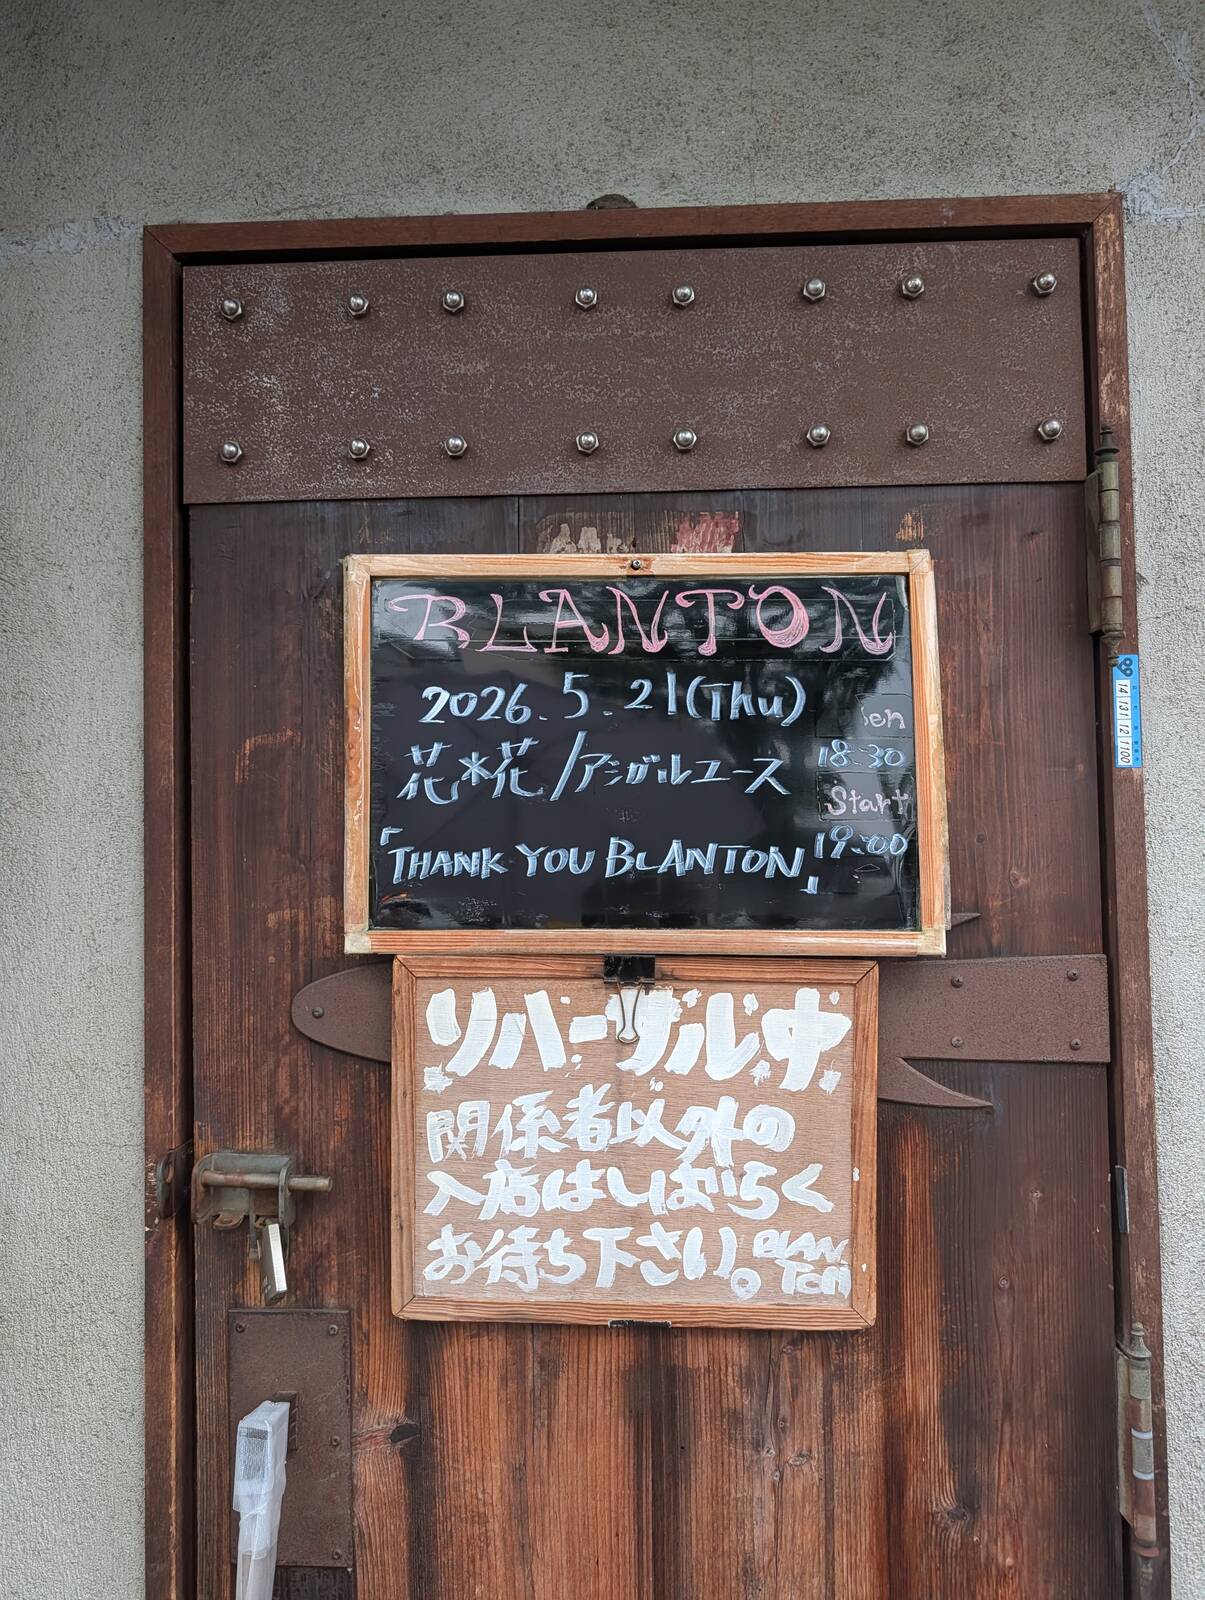 BLANTON
2026.5.21(Thu)
花*花/アシガルユース
「THANK YOU BLANTON」
18:30
Start
19:00
リハーサル中
関係者以外の
入店はしばらく
お待ち下さい。
BLAN
TON
14 131 12 1100